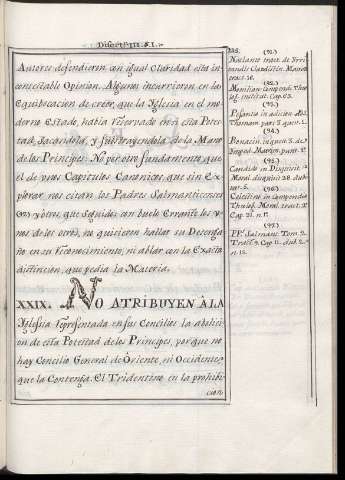 Disert.n III. §. I.
Autores defendieron con igual Claridad esta in-
contestable Opinion. Algunos incurrieron en la
Equibocacion de creer, que la Yglesia en el mo-
derno Estado, havia reservado en si esta Potes-
tad, Sacandola, y substrayendola de la Mano
de los Principes. No por otro fundamento, que
el de unos Capitulos Canonicos, que sin Ex-
plorar nos citan los Padres Salmanticenses
(97) y otros, que Seguidos con buelo Errante los u-
nos de los otros, no quisieron hallar su Desenga-
no en su Reconocimiento, ni ablar con la Exacta
distincion, que pedia la Materia.
XXIX. NO ATRIBUYEN Â LA
Yglesia representada en sus Concilios la abolici-
on de esta Potestad de los Principes, porque no
hay Concilio General de Oriente, ni Occidente
que la Contenga. El Tridentino en la prohibi-
cion
(91.)
Naclante tract. de
Clandestin. Matrim.
(92.)
Maniliam Compend. Theo-
log.
Cap. 63.
(93.)
in adicion. ad S.
Thomam part. 3. quest. 1.
(94.)
Bonacin. in quest. 3. de
Matrim. punt. 2.
(95.)
Candido in Disquisit.
Moral. disquisit. 28. du-
(96.)
Celestino in Compendio
Theolog. Moral. tract. 2.
Cap. 21. n. 17.
(97.)
PP. Salmant. Tom. 2.
Tract. 9. Cap. 11. dub. 2.
n. 12.